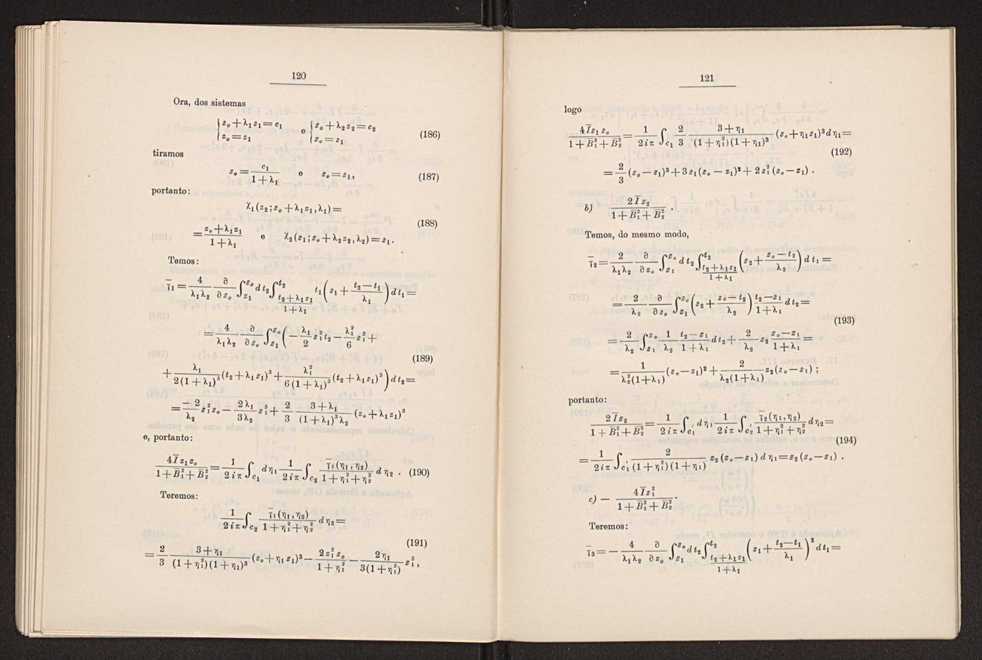 120
Ora, dos sistemas
{z₀+λ₁z₁=c₁ e {z₀+λ₂z₂=c₂
{z₀=z₁ {z₀=z₁ (186)
tiramos
z₀ = c₁/(1+λ₁) e z₀=z₁, (187)
portanto:
χ₁(z₂; z₀+λ₁z₁, λ₁)=
= (z₀+λ₁z₁)/(1+λ₁) e χ₂(z₁; z₀+λ₂z₂, λ₂)=z₁. (188)
Temos:
γ̄₁ = 4/(λ₁λ₂) ∂/∂z₀ ∫_{z₁}^{z₀} dt₂ ∫_{(t₂+λ₁z₁)/(1+λ₁)}^{t₂} t₁(z₁ + (t₂−t₁)/λ₁) dt₁ =
= 4/(λ₁λ₂) ∂/∂z₀ ∫_{z₁}^{z₀} (− λ₁/2 z₁² t₂ − λ₁²/6 z₁³ +
+ λ₁/(2(1+λ₁)³) (t₂+λ₁z₁)³ + λ₁²/(6(1+λ₁)³) (t₂+λ₁z₁)³) dt₂ = (189)
= −2/λ₂ z₁² z₀ − 2λ₁/(3λ₂) z₁³ + 2/3 (3+λ₁)/((1+λ₁)³λ₂) (z₀+λ₁z₁)³
e, portanto:
4Īz₁z₀/(1+B₁²+B₂²) = 1/(2iπ) ∫_{c₁} dη₁ 1/(2iπ) ∫_{c₂} γ̄₁(η₁,η₂)/(1+η₁²+η₂²) dη₂ . (190)
Teremos:
1/(2iπ) ∫_{c₂} γ̄₁(η₁,η₂)/(1+η₁²+η₂²) dη₂ =
= 2/3 (3+η₁)/((1+η₁²)(1+η₁)³) (z₀+η₁z₁)³ − 2z₁²z₀/(1+η₁²) − 2η₁/(3(1+η₁²)) z₁³, (191)
121
logo
4Īz₁z₀/(1+B₁²+B₂²) = 1/(2iπ) ∫_{c₁} 2/3 (3+η₁)/((1+η₁²)(1+η₁)³) (z₀+η₁z₁)³ dη₁ =
= 2/3 (z₀−z₁)³ + 3z₁(z₀−z₁)² + 2z₁²(z₀−z₁) . (192)
b) 2Īz₂/(1+B₁²+B₂²) .
Temos, do mesmo modo,
γ̄₂ = 2/(λ₁λ₂) ∂/∂z₀ ∫_{z₁}^{z₀} dt₂ ∫_{(t₂+λ₁z₁)/(1+λ₁)}^{t₂} (z₂ + (z₀−t₂)/λ₂) dt₁ =
= 2/λ₂ ∂/∂z₀ ∫_{z₁}^{z₀} (z₂ + (z₀−t₂)/λ₂) (t₂−z₁)/(1+λ₁) dt₂ =
= 2/λ₂ ∫_{z₁}^{z₀} 1/λ₂ (t₂−z₁)/(1+λ₁) dt₂ + 2/λ₂ z₂ (z₀−z₁)/(1+λ₁) = (193)
= 1/(λ₂²(1+λ₁)) (z₀−z₁)² + 2/(λ₂(1+λ₁)) z₂(z₀−z₁) ;
portanto:
2Īz₂/(1+B₁²+B₂²) = 1/(2iπ) ∫_{c₁} dη₁ 1/(2iπ) ∫_{c₂} γ̄₂(η₁,η₂)/(1+η₁²+η₂²) dη₂ =
= 1/(2iπ) ∫_{c₁} 2/((1+η₁²)(1+η₁)) z₂(z₀−z₁) dη₁ = z₂(z₀−z₁) . (194)
c) − 4Īz₁²/(1+B₁²+B₂²) .
Teremos:
γ̄₃ = − 4/(λ₁λ₂) ∂/∂z₀ ∫_{z₁}^{z₀} dt₂ ∫_{(t₂+λ₁z₁)/(1+λ₁)}^{t₂} (z₁ + (t₂−t₁)/λ₁)² dt₁ =